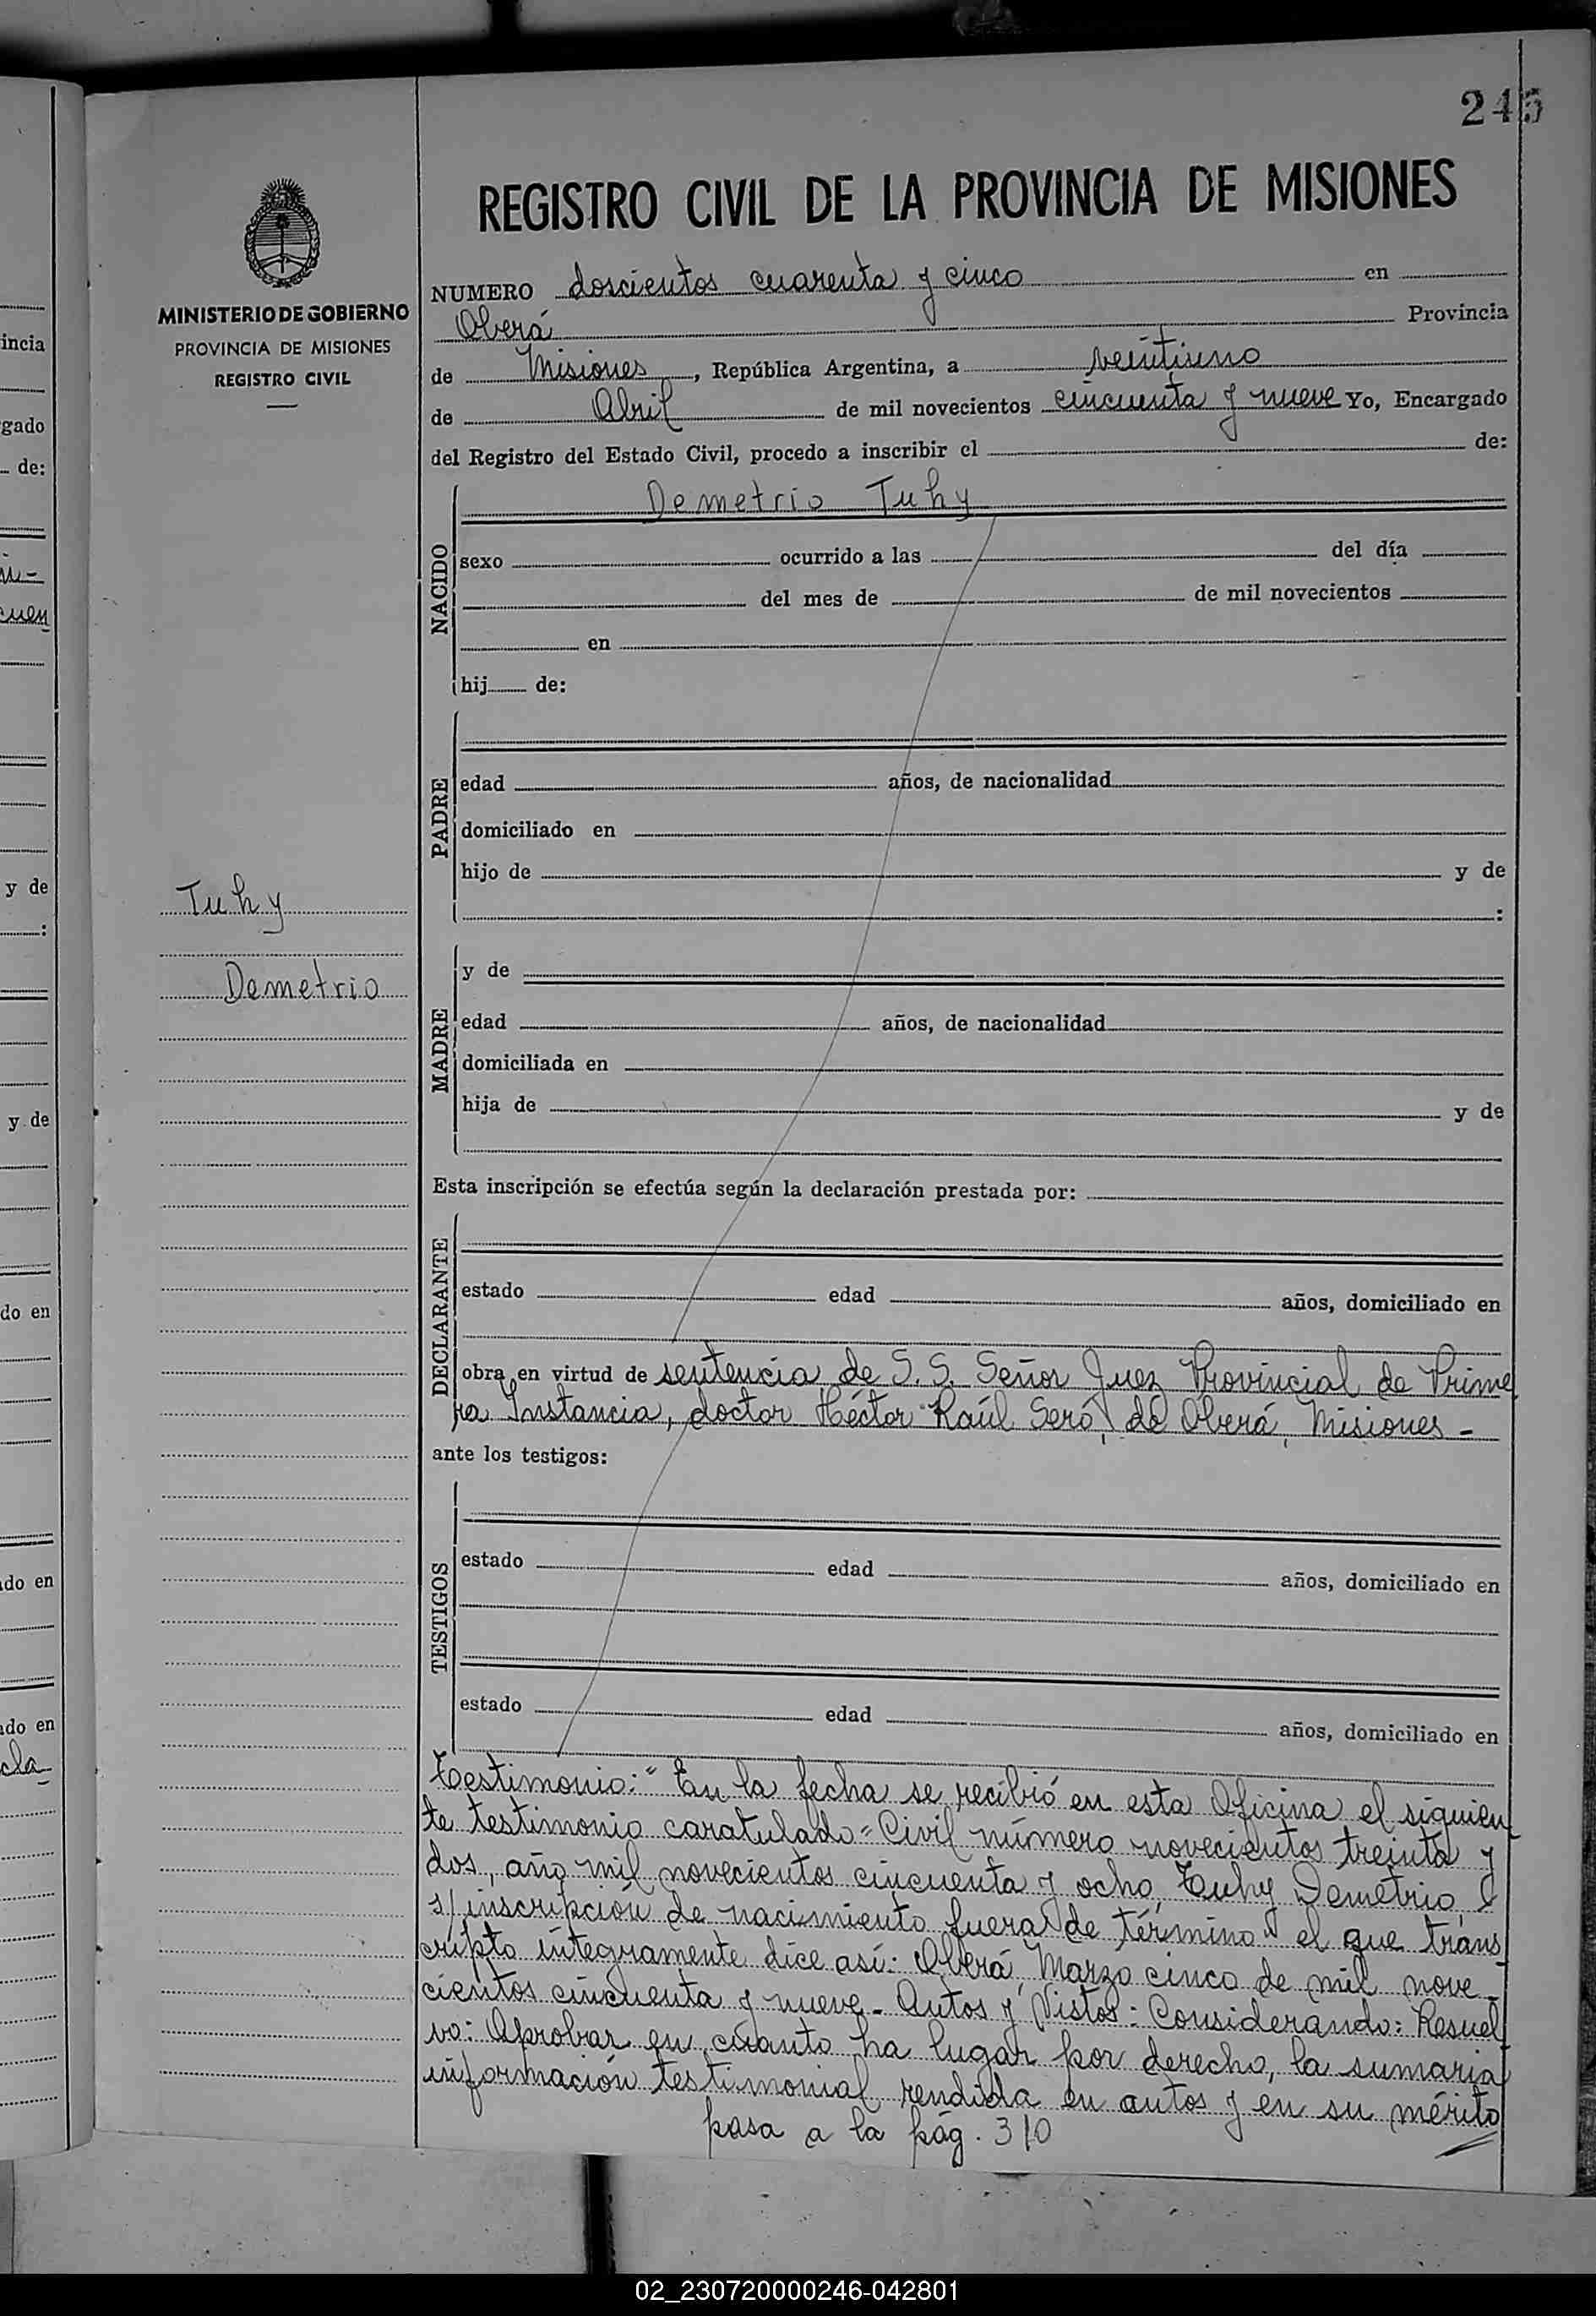 245
REGISTRO CIVIL DE LA PROVINCIA DE MISIONES
MINISTERIO DE GOBIERNO
PROVINCIA DE MISIONES
REGISTRO CIVIL
NUMERO doscientos cuarenta y cinco en
Oberá Provincia
de Misiones, República Argentina, a veintiuno
de Abril de mil novecientos cincuenta y nueve Yo, Encargado
del Registro del Estado Civil, procedo a inscribir el de:
NACIDO
Demetrio Tuhy
sexo ocurrido a las del día
del mes de de mil novecientos
en
hij de:
PADRE
edad años, de nacionalidad
domiciliado en
hijo de y de
:
Tuhy
Demetrio
MADRE
y de
edad años, de nacionalidad
domiciliada en
hija de y de
Esta inscripción se efectúa según la declaración prestada por:
DECLARANTE
estado edad años, domiciliado en
obra en virtud de sentencia de S. S. Señor Juez Provincial de Prime
ra Instancia, doctor Héctor Raúl Seró, de Oberá, Misiones -
ante los testigos:
TESTIGOS
estado edad años, domiciliado en
estado edad años, domiciliado en
Testimonio: "En la fecha se recibió en esta Oficina el siguien
te testimonio caratulado = Civil número novecientos treinta y
dos, año mil novecientos cincuenta y ocho, Tuhy Demetrio
s/ inscripción de nacimiento fuera de término" el que trans
cripto íntegramente dice así: Oberá, Marzo cinco de mil nove-
cientos cincuenta y nueve - Autos y Vistos: Considerando: Resuel
vo: Aprobar en cuanto ha lugar por derecho, la sumaria
información testimonial rendida en autos y en su mérito
pasa a la pág. 310
incia
gado
de:
cuen
y de
:
y de
do en
do en
do en
cla
02_230720000246-042801